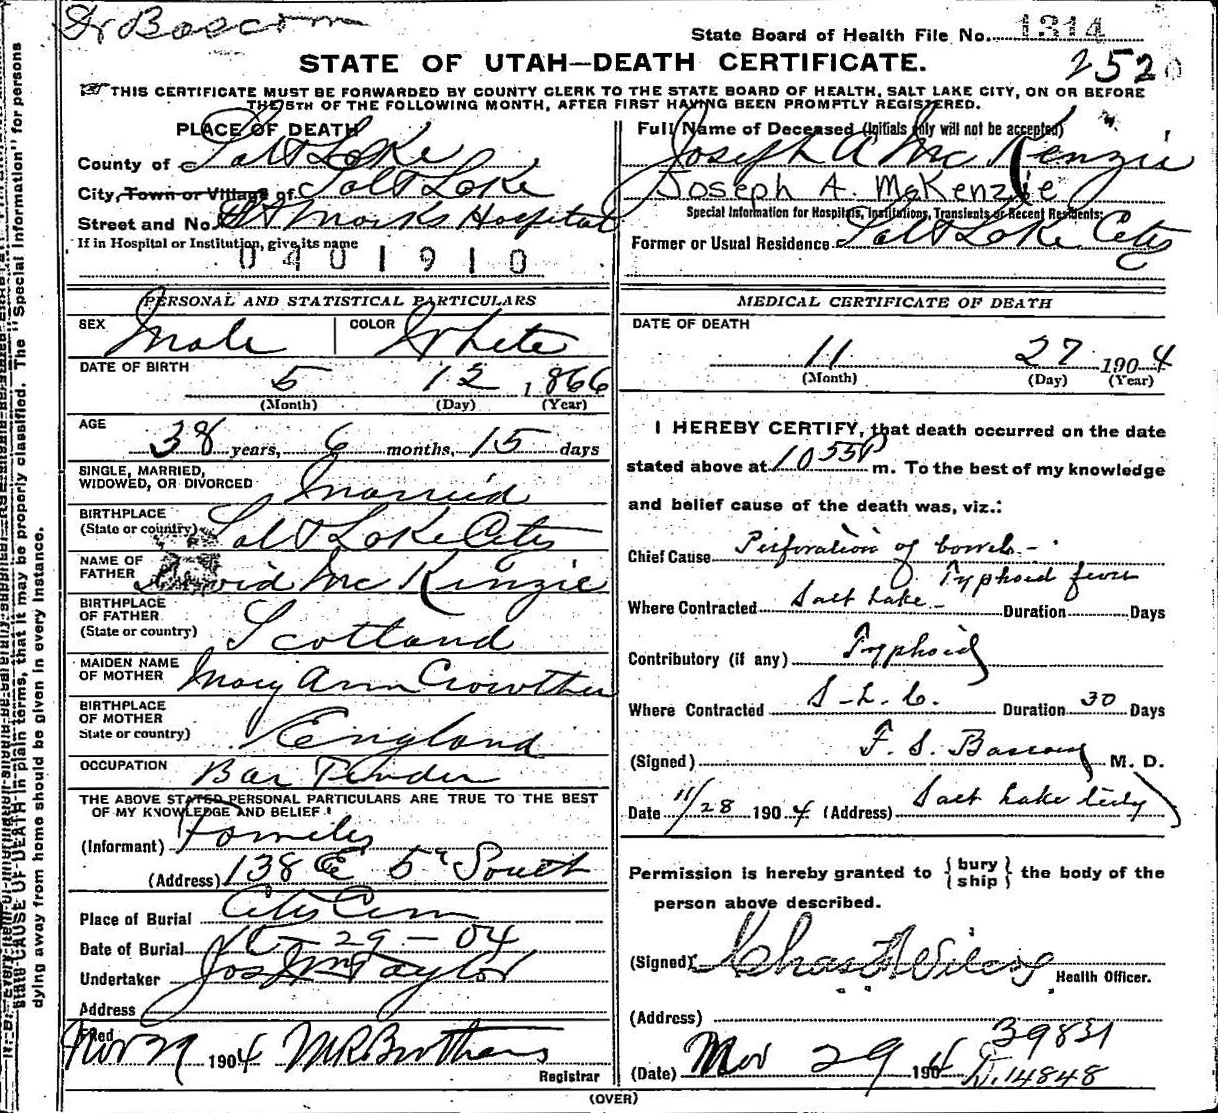 Dr Bascom
State Board of Health File No. 1314
2520
STATE OF UTAH—DEATH CERTIFICATE.
THIS CERTIFICATE MUST BE FORWARDED BY COUNTY CLERK TO THE STATE BOARD OF HEALTH, SALT LAKE CITY, ON OR BEFORE
THE 5TH OF THE FOLLOWING MONTH, AFTER FIRST HAVING BEEN PROMPTLY REGISTERED.
PLACE OF DEATH
County of Salt Lake
City, Town or Village of Salt Lake
Street and No. St Marks Hospital
If in Hospital or Institution, give its name
0401910
Full Name of Deceased (Initials only will not be accepted)
Joseph A McKenzie
Joseph A. McKenzie
Special Information for Hospitals, Institutions, Transients or Recent Residents:
Former or Usual Residence Salt Lake City
PERSONAL AND STATISTICAL PARTICULARS
SEX Male COLOR White
DATE OF BIRTH
5 12 1866
(Month) (Day) (Year)
AGE
38 years, 6 months, 15 days
SINGLE, MARRIED,
WIDOWED, OR DIVORCED Married
BIRTHPLACE
(State or country) Salt Lake City
NAME OF
FATHER David McKinzie
BIRTHPLACE
OF FATHER
(State or country) Scotland
MAIDEN NAME
OF MOTHER Mary Ann Crowther
BIRTHPLACE
OF MOTHER
State or country) England
OCCUPATION Bar Tender
THE ABOVE STATED PERSONAL PARTICULARS ARE TRUE TO THE BEST
OF MY KNOWLEDGE AND BELIEF
(Informant) Family
(Address) 138 E 5th South
Place of Burial City Cem
Date of Burial 29-04
Undertaker Jos Wm Taylor
Address
Filed Nov 29 1904 M R Brothers
Registrar
MEDICAL CERTIFICATE OF DEATH
DATE OF DEATH
11 27 1904
(Month) (Day) (Year)
I HEREBY CERTIFY, that death occurred on the date
stated above at 10 55 P m. To the best of my knowledge
and belief cause of the death was, viz.:
Chief Cause Perforation of bowels -
Typhoid fever
Where Contracted Salt Lake Duration Days
Contributory (if any) Typhoid
Where Contracted S-L. C. Duration 30 Days
(Signed) F. S. Bascom M. D.
Date 11/28 1904 (Address) Salt Lake City
Permission is hereby granted to { bury ship } the body of the
person above described.
(Signed)
Health Officer.
(Address)
39831
(Date) Nov 29 1904 D.14848
(OVER)
CAUSE OF DEATH in plain terms, that it may be properly classified. The "Special Information" for persons
dying away from home should be given in every instance.